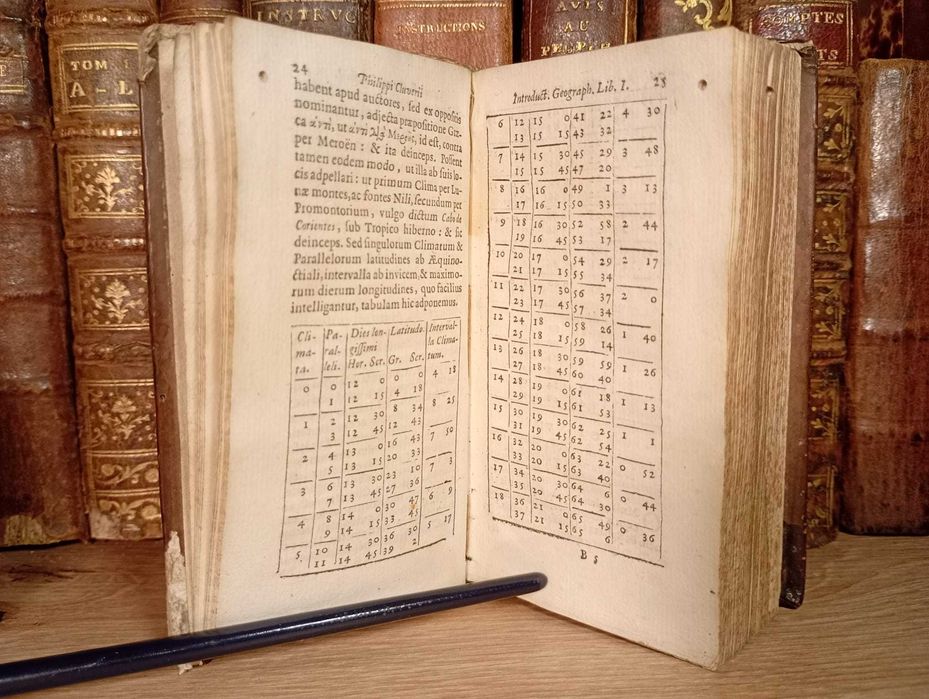 TOM. I
A-L
INSTRUC
INSTRUCTIONS
AVIS
AU
PEUPLE
COMPTES
24
Philippi Cluverii
habent apud auctores, sed ex oppositis
nominantur, adjecta præpositione Græ-
ca ἀντὶ, ut ἀντὶ Διὰ Μερόης, id est, contra
per Meroën : & ita deinceps. Possent
tamen eodem modo, ut illa ab suis lo-
cis adpellari : ut primum Clima per Lu-
næ montes, ac fontes Nili, secundum per
Promontorium, vulgo dictum Cabo de
Corientes, sub Tropico hiberno : & sic
deinceps. Sed singulorum Climatum &
Parallelorum latitudines ab Æquino-
ctiali, intervalla ab invicem, & maximo-
rum dierum longitudines, quo facilius
intelligantur, tabulam hic adponemus.
Cli- Pa- Dies lon- Latitudo. Interval-
ma- ral- gissimi la Clima-
ta. leli. Hor. Scr. Gr. Scr. tum.
0 0 12 0 0 0 4 18
1 12 15 4 18
1 2 12 30 8 34 8 25
3 12 45 12 43
2 4 13 0 16 43 7 50
5 13 15 20 33
3 6 13 30 23 10 7 3
7 13 45 27 36
4 8 14 0 30 47 6 9
9 14 15 33 45
5 10 14 30 36 30 5 17
11 14 45 39 2
Introduct. Geograph. Lib. I. 25
6 12 15 0 41 22 4 30
13 15 15 43 32
7 14 15 30 45 29 3 48
15 15 45 47 20
8 16 16 0 49 1 3 13
17 16 15 50 33
9 18 16 30 52 58 2 44
19 16 45 53 17
10 20 17 0 54 29 2 17
21 17 15 55 34
11 22 17 30 56 37 2 0
23 17 45 57 34
12 24 18 0 58 26 1 40
25 18 15 59 14
13 26 18 30 59 59 1 26
27 18 45 60 40
14 28 19 0 61 18 1 13
29 19 15 61 53
15 30 19 30 62 25 1 1
31 19 45 62 54
16 32 20 0 63 22 0 52
33 20 15 63 40
17 34 20 30 64 6 0 44
35 20 45 64 30
18 36 21 0 65 49 0 36
37 21 15 65 6
B 5